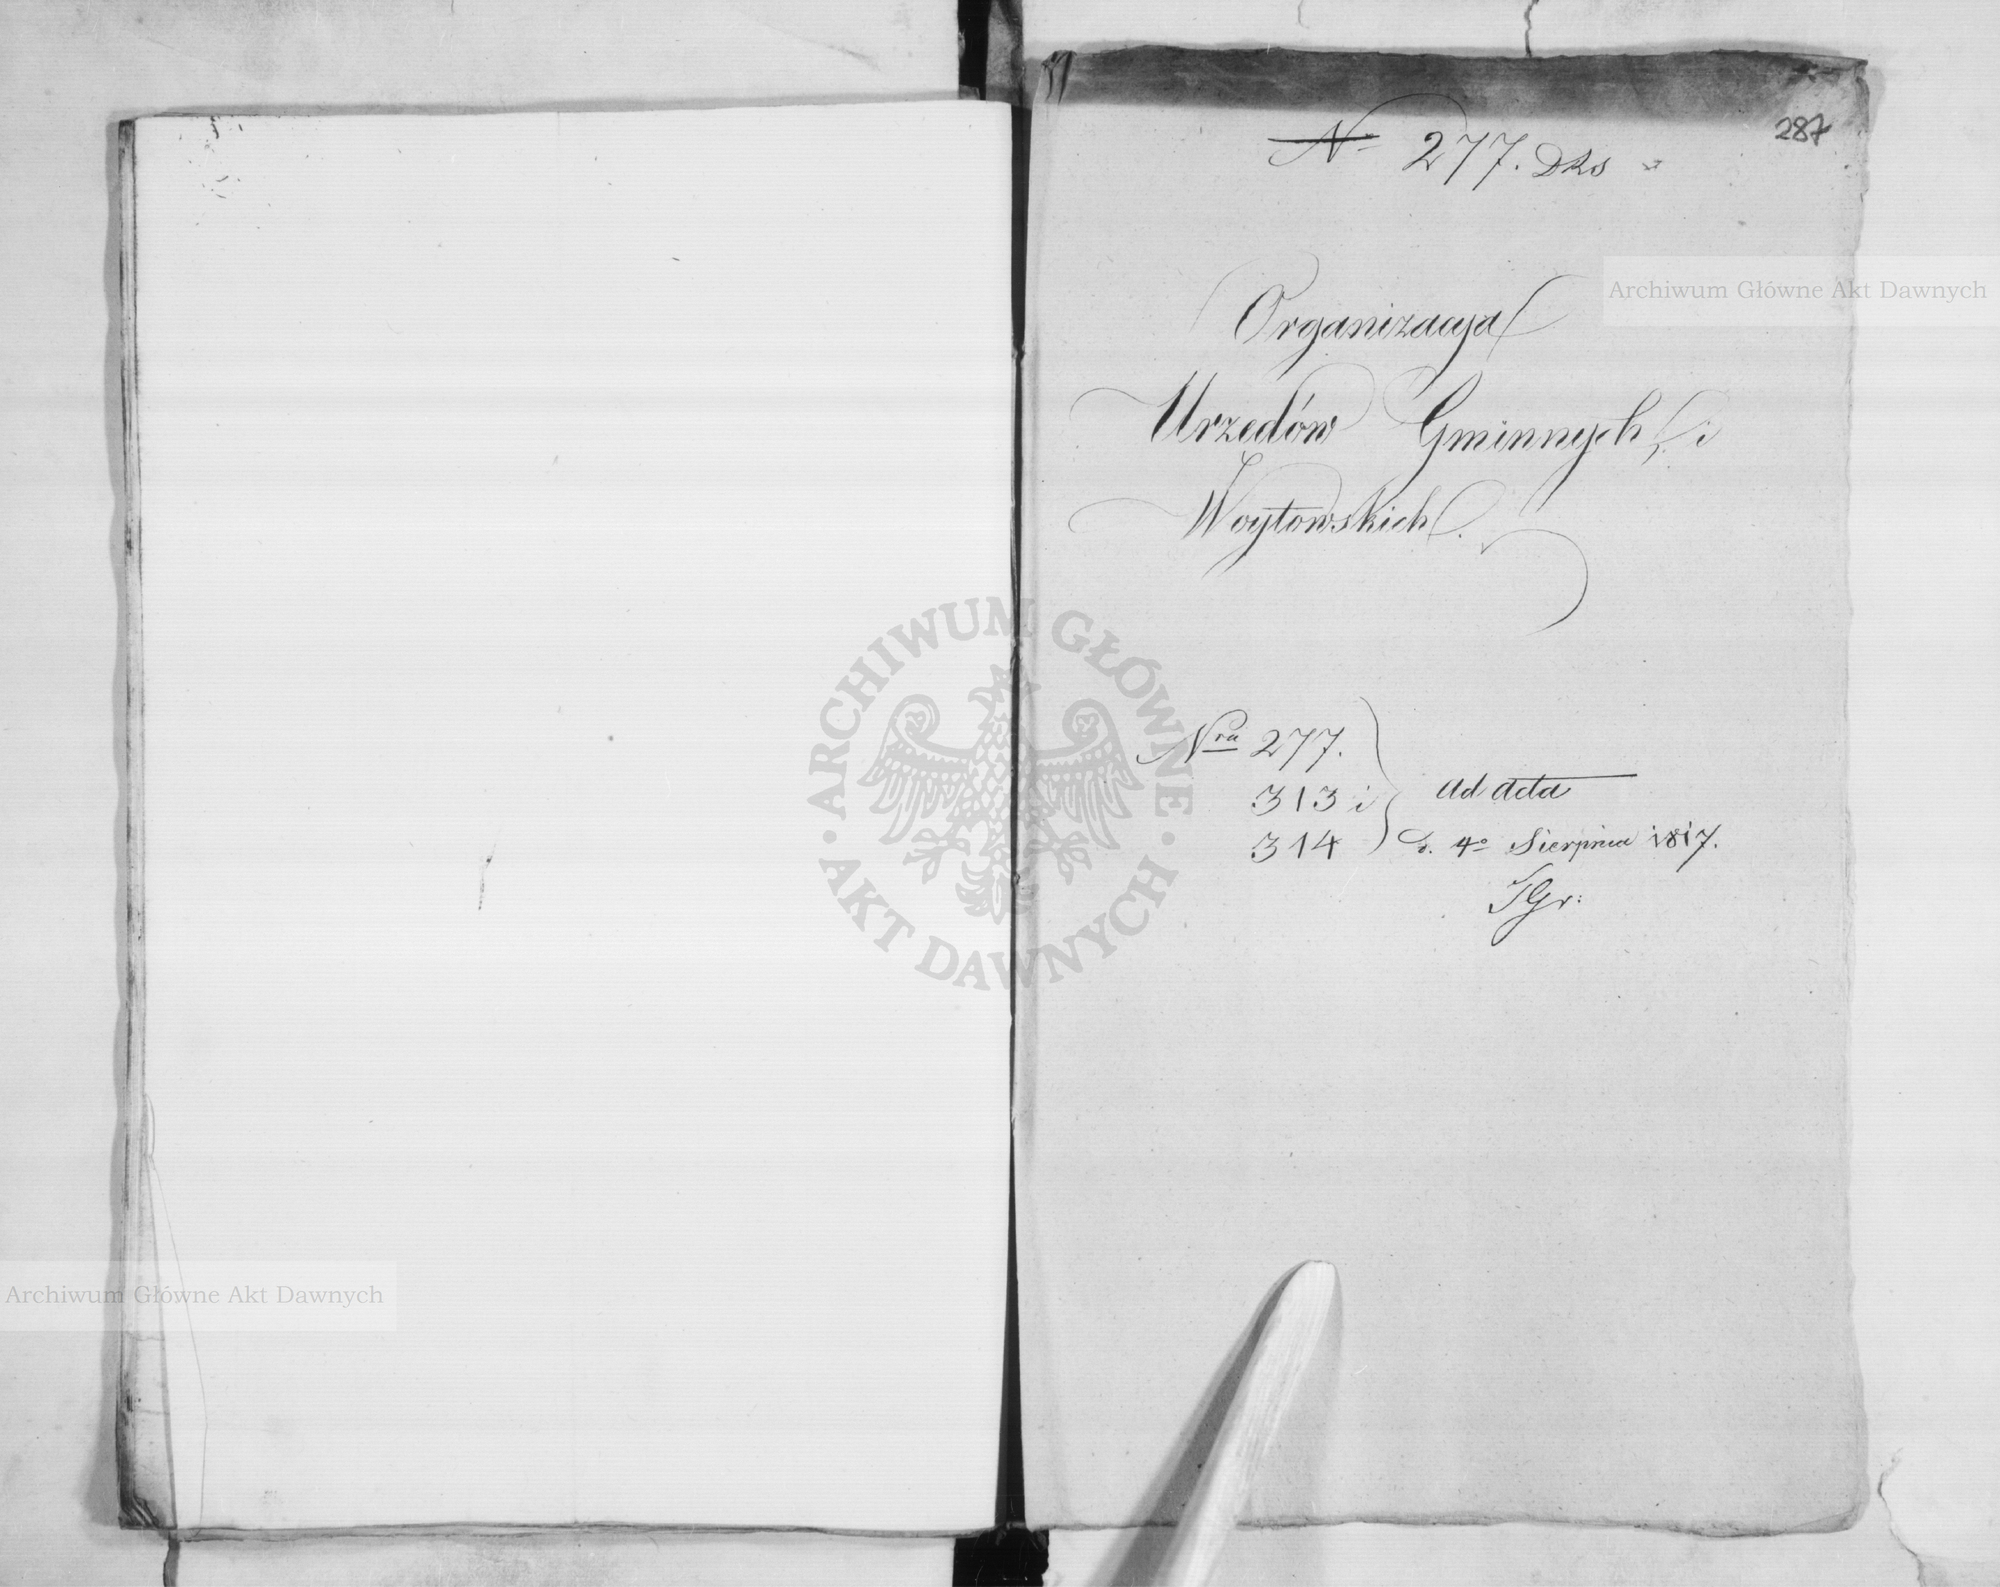 287
N° 277. DRs
Organizacya
Urzedów Gminnych i
Woytowskich.
Nra 277.
313 i
314
ad acta
d. 4° Sierpnia 1817.
Archiwum Główne Akt Dawnych
ARCHIWUM GŁÓWNE · AKT DAWNYCH ·
Archiwum Główne Akt Dawnych